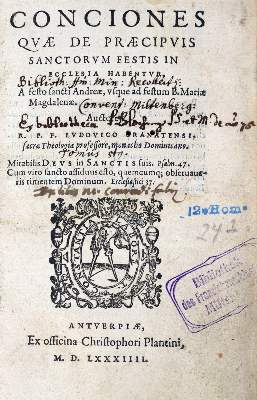 CONCIONES
QVÆ DE PRÆCIPVIS
SANCTORVM FESTIS IN
ECCLESIA HABENTVR,
Biblioth. ffr. Min: Recollect:
A festo sancti Andreæ, vsque ad festum B. Mariæ
Magdalenæ.
Convent. Miltenberg:
Auctore
R. P. F. LVDOVICO GRANATENSI,
sacræ Theologiæ professore, monachis Dominicano.
Tomus
Mirabilis DEVS in SANCTIS suis. Psalm. 47.
Cum viro sancto assiduus esto, quemcumq; obseruaue-
ris timentem Dominum. Ecclesiastici 37.
12° Hom.
242
Bibliothek
des Franziskaner
ANTVERPIÆ,
Ex officina Christophori Plantini,
M. D. LXXXIIII.